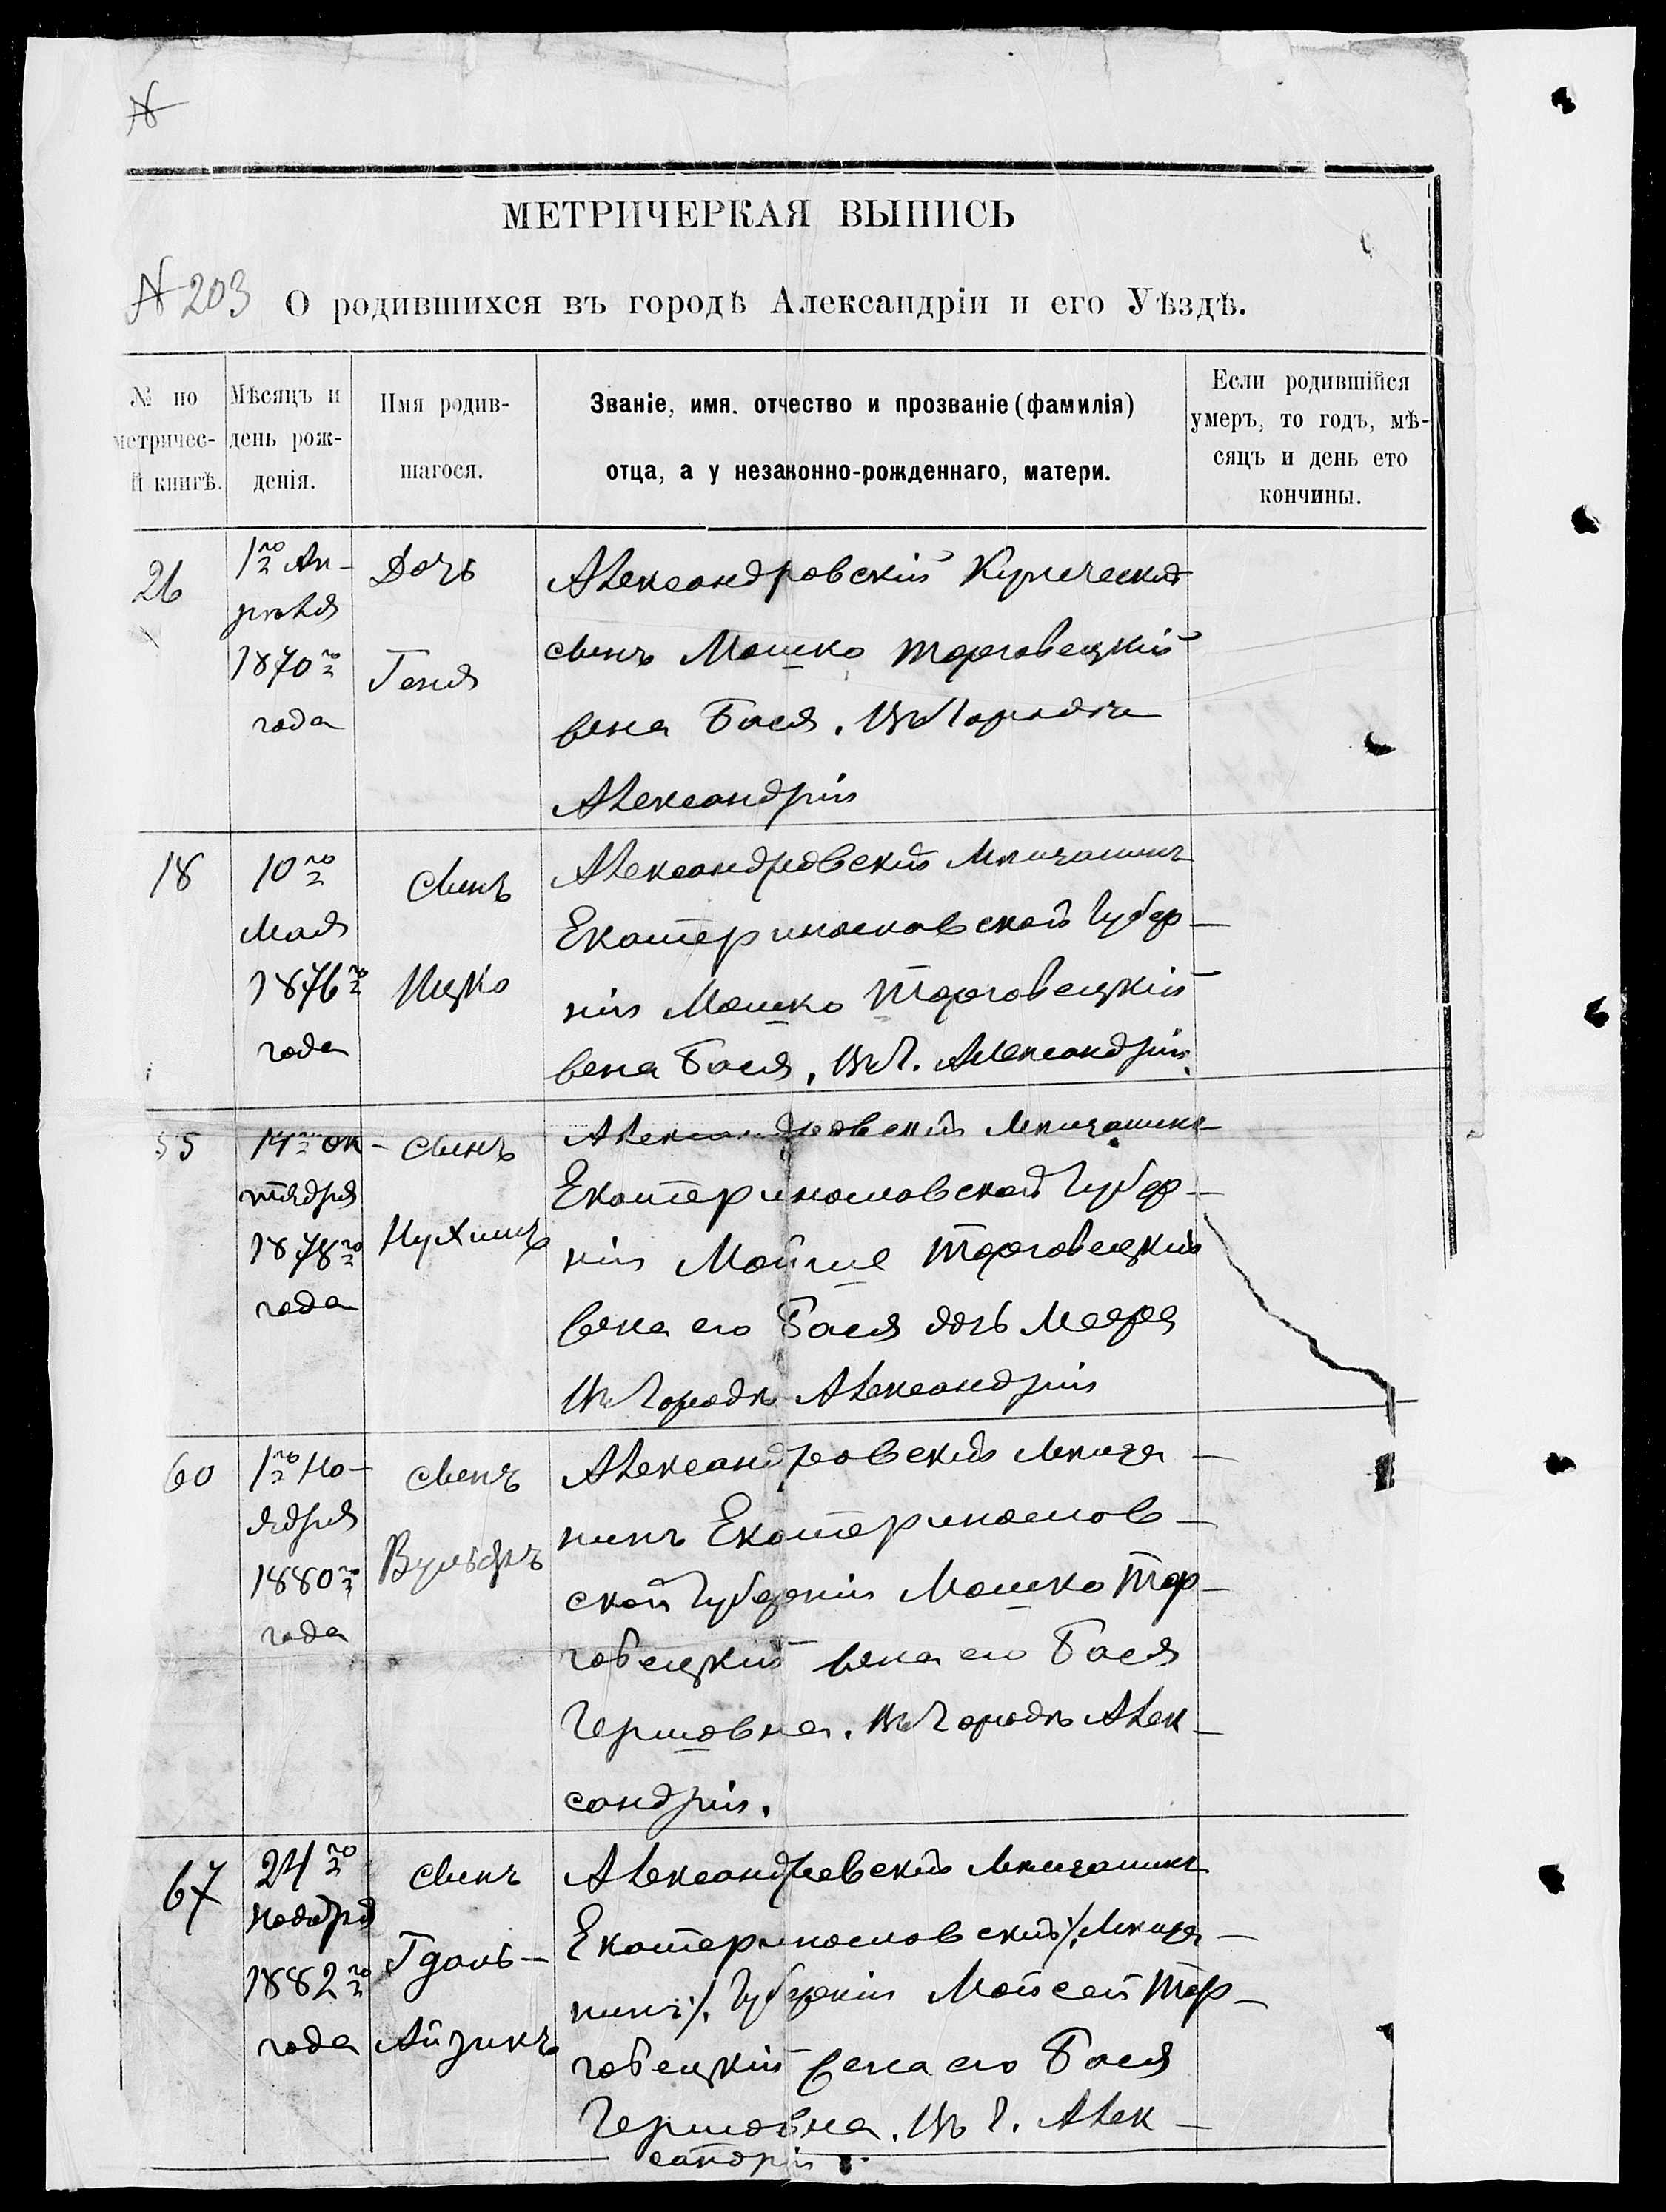 №
МЕТРИЧЕРКАЯ ВЫПИСЬ
№ 203 О родившихся въ городѣ Александріи и его Уѣздѣ.
№ по
метричес-
й книгѣ.
Мѣсяцъ и
день рож-
денія.
Имя родив-
шагося.
Званіе, имя. отчество и прозваніе (фамилія)
отца, а у незаконно-рожденнаго, матери.
Если родившійся
умеръ, то годъ, мѣ-
сяцъ и день ето
кончины.
26
1го Ап-
рѣля
1870го
года
Дочь
Геня
Александровскій Купеческій
сынъ Мошко Торговецкій
жена Бася. Въ Городѣ
Александріи
18
10го
Мая
1876го
года
сынъ
Ицко
Александровскій Мѣщанинъ
Екатеринославской Губер-
ніи Мошко Торговецкій
жена Бася, Въ Г. Александріи.
55
14го Ок-
тября
1878го
года
сынъ
Нухимъ
Александровскій Мѣщанинъ
Екатеринославской Губер-
ніи Мойше Торговецкій
жена его Бася дочь Меера
Въ Городѣ Александріи
60
1го Но-
ября
1880го
года
сынъ
Вульфъ
Александровскій Мѣща-
нинъ Екатеринослов-
ской Губерніи Мошко Тор-
говецкій жена его Бася
Гершовна. Въ Городѣ Алек-
сандріи.
67
24го
Ноября
1882го
года
сынъ
Гдаль-
Айзикъ
Александровскій Мѣщанинъ
Екатеринославскій /. Мѣща-
нинъ /. Губерніи Мойсей Тор-
говецкій жена его Бася
Гершовна. Въ Г. Алек-
сандріи.